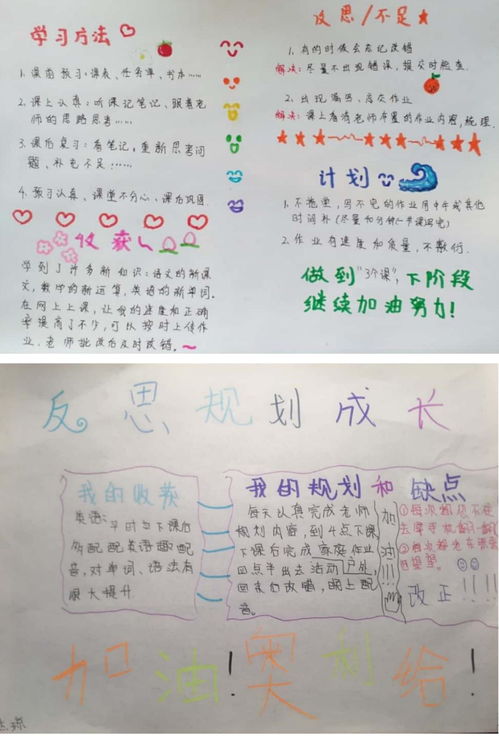 学习方法
1. 课前预习:课表、任务单、书本……
2. 课上认真:听课记笔记、跟着老
师的思路思考……
3. 课后复习:看笔记,重新思考问
题、补充不足……
4. 预习认真、课堂不分心、课后巩固.
收获
学到了许多新知识:语文的新课
文,数学的新运算,英语的新单词.
在网上上课,让我的速度和正确
率提高了不少,可以按时上传作
业、老师批改后及时改错.
反思/不足
1. 有的时候会忘记改错
解决:尽量不出现错误,提交时检查.
2. 出现漏写、忘交作业
解决:课上看清老师布置的作业内容,梳理.
计划
1. 不拖堂,写不完的作业用中午或其他
时间补
2. 作业有速度和质量,不敷衍.
做到"3个课",下阶段
继续加油努力!
反思规划成长
我的收获
英语:平时与下课后
多配配英语趣配
音,对单词、语法有
很大提升
我的规划和缺点
每天认真完成老师
规划内容,到4点下课
下课后完成家庭作业
四点半出去活动户外,
回来们改错,晚上配
音。
加油!!!
改正!!!!
加油!奥利给!